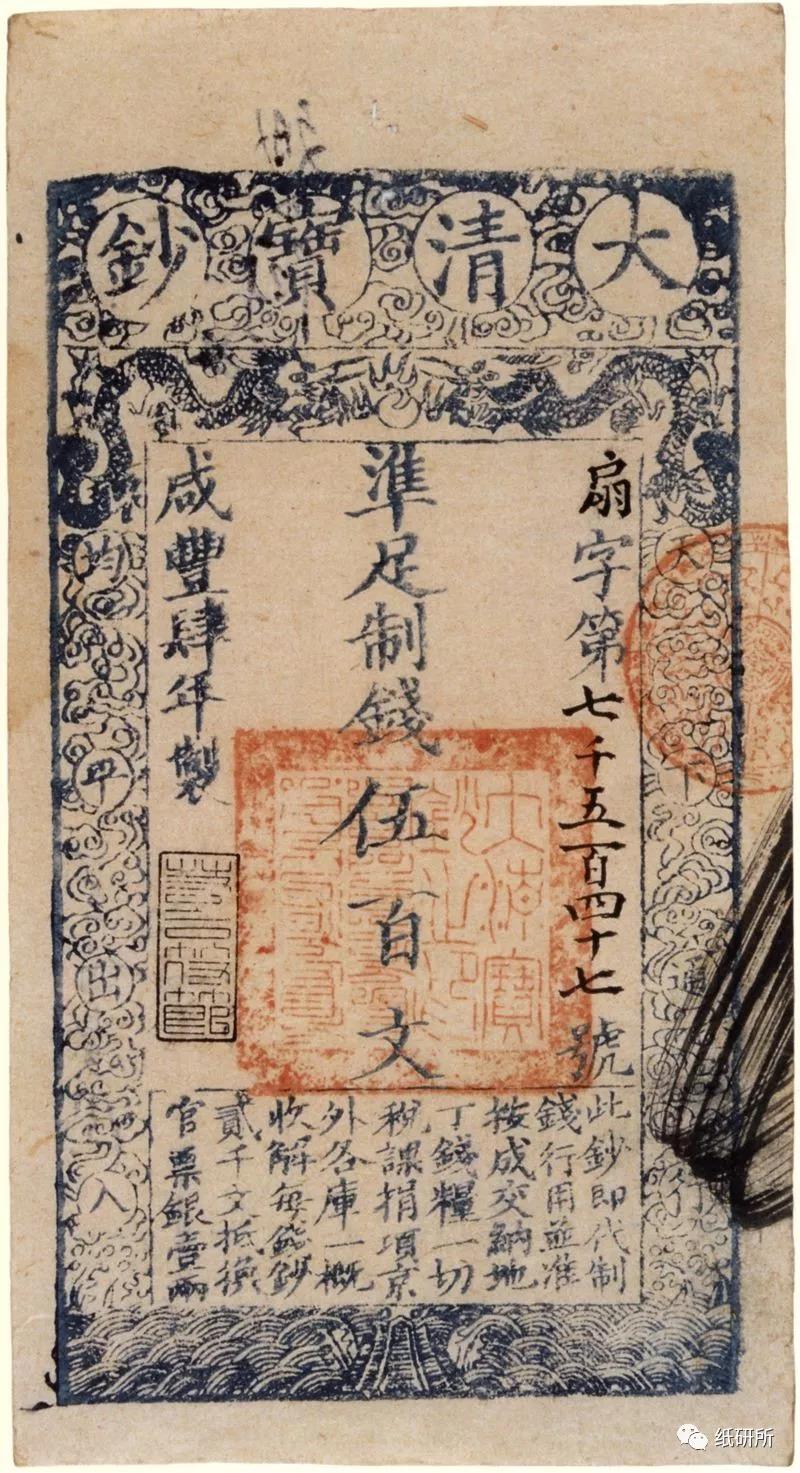 大清寶鈔
天下通行
扇字第七千五百四十七號
準足制錢伍百文
咸豐肆年製
均平出入
此鈔即代制
錢行用並準
按成交納地
丁錢糧一切
稅課捐項京
外各庫一概
收解每錢鈔
貳千文抵換
官票銀壹兩
大清寶鈔之印
纸研所